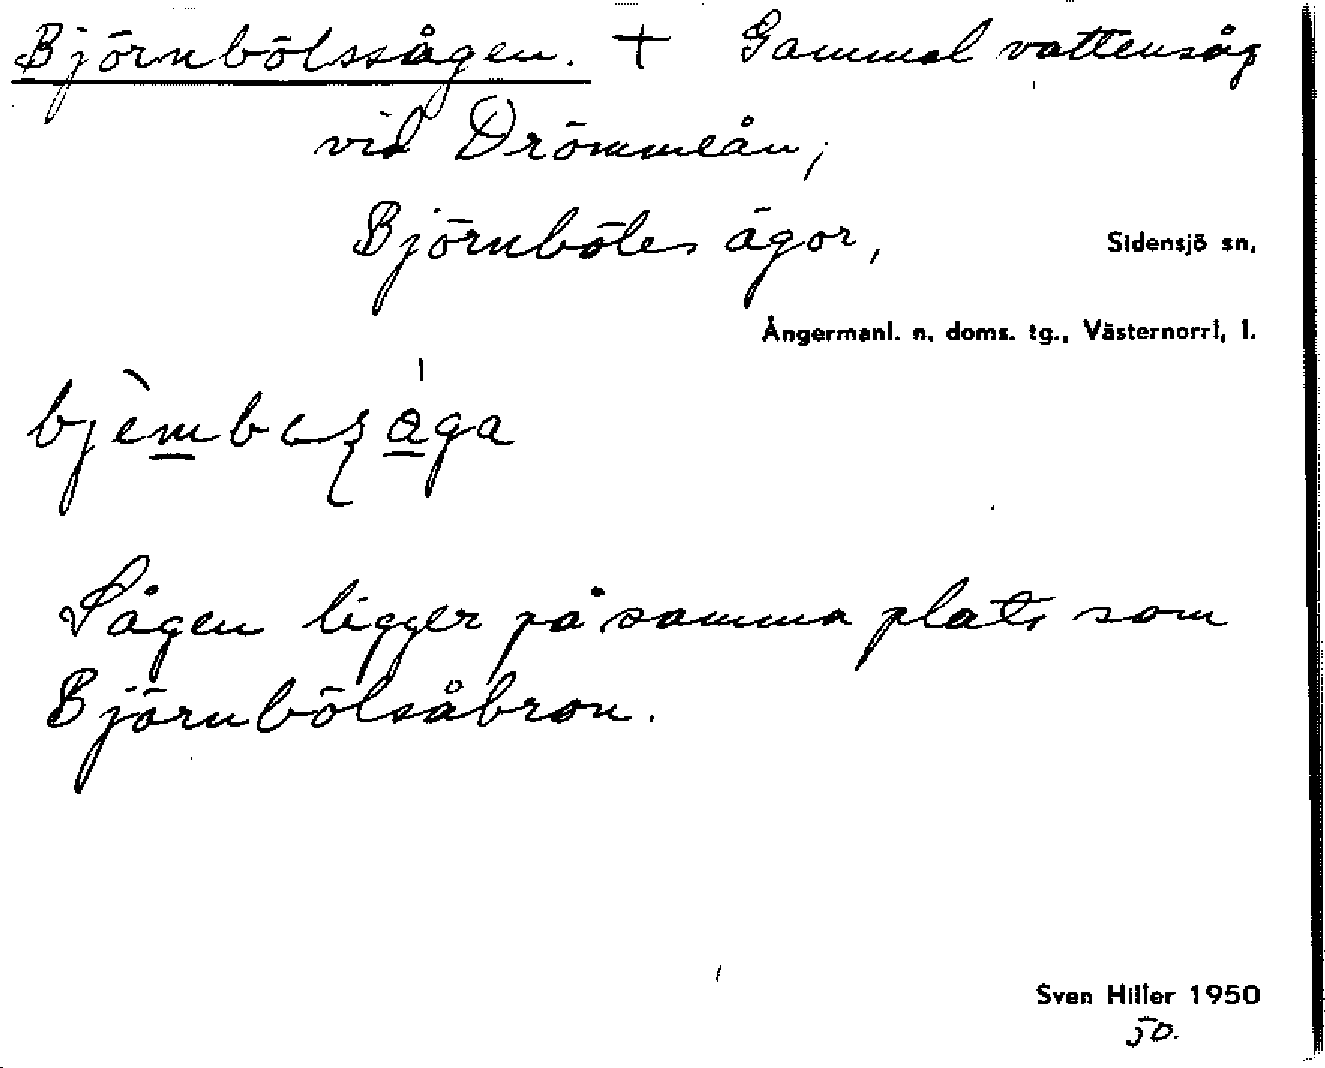 Björnbölssågen. + Gammal vattensåg
vid Drömmeån,
Björnböles ägor, Sidensjö sn,
Ångermanl. n. doms. tg., Västernorrl, l.
Sågen ligger på samma plats som
Björnbölsåbron.
Sven Hiller 1950
50.